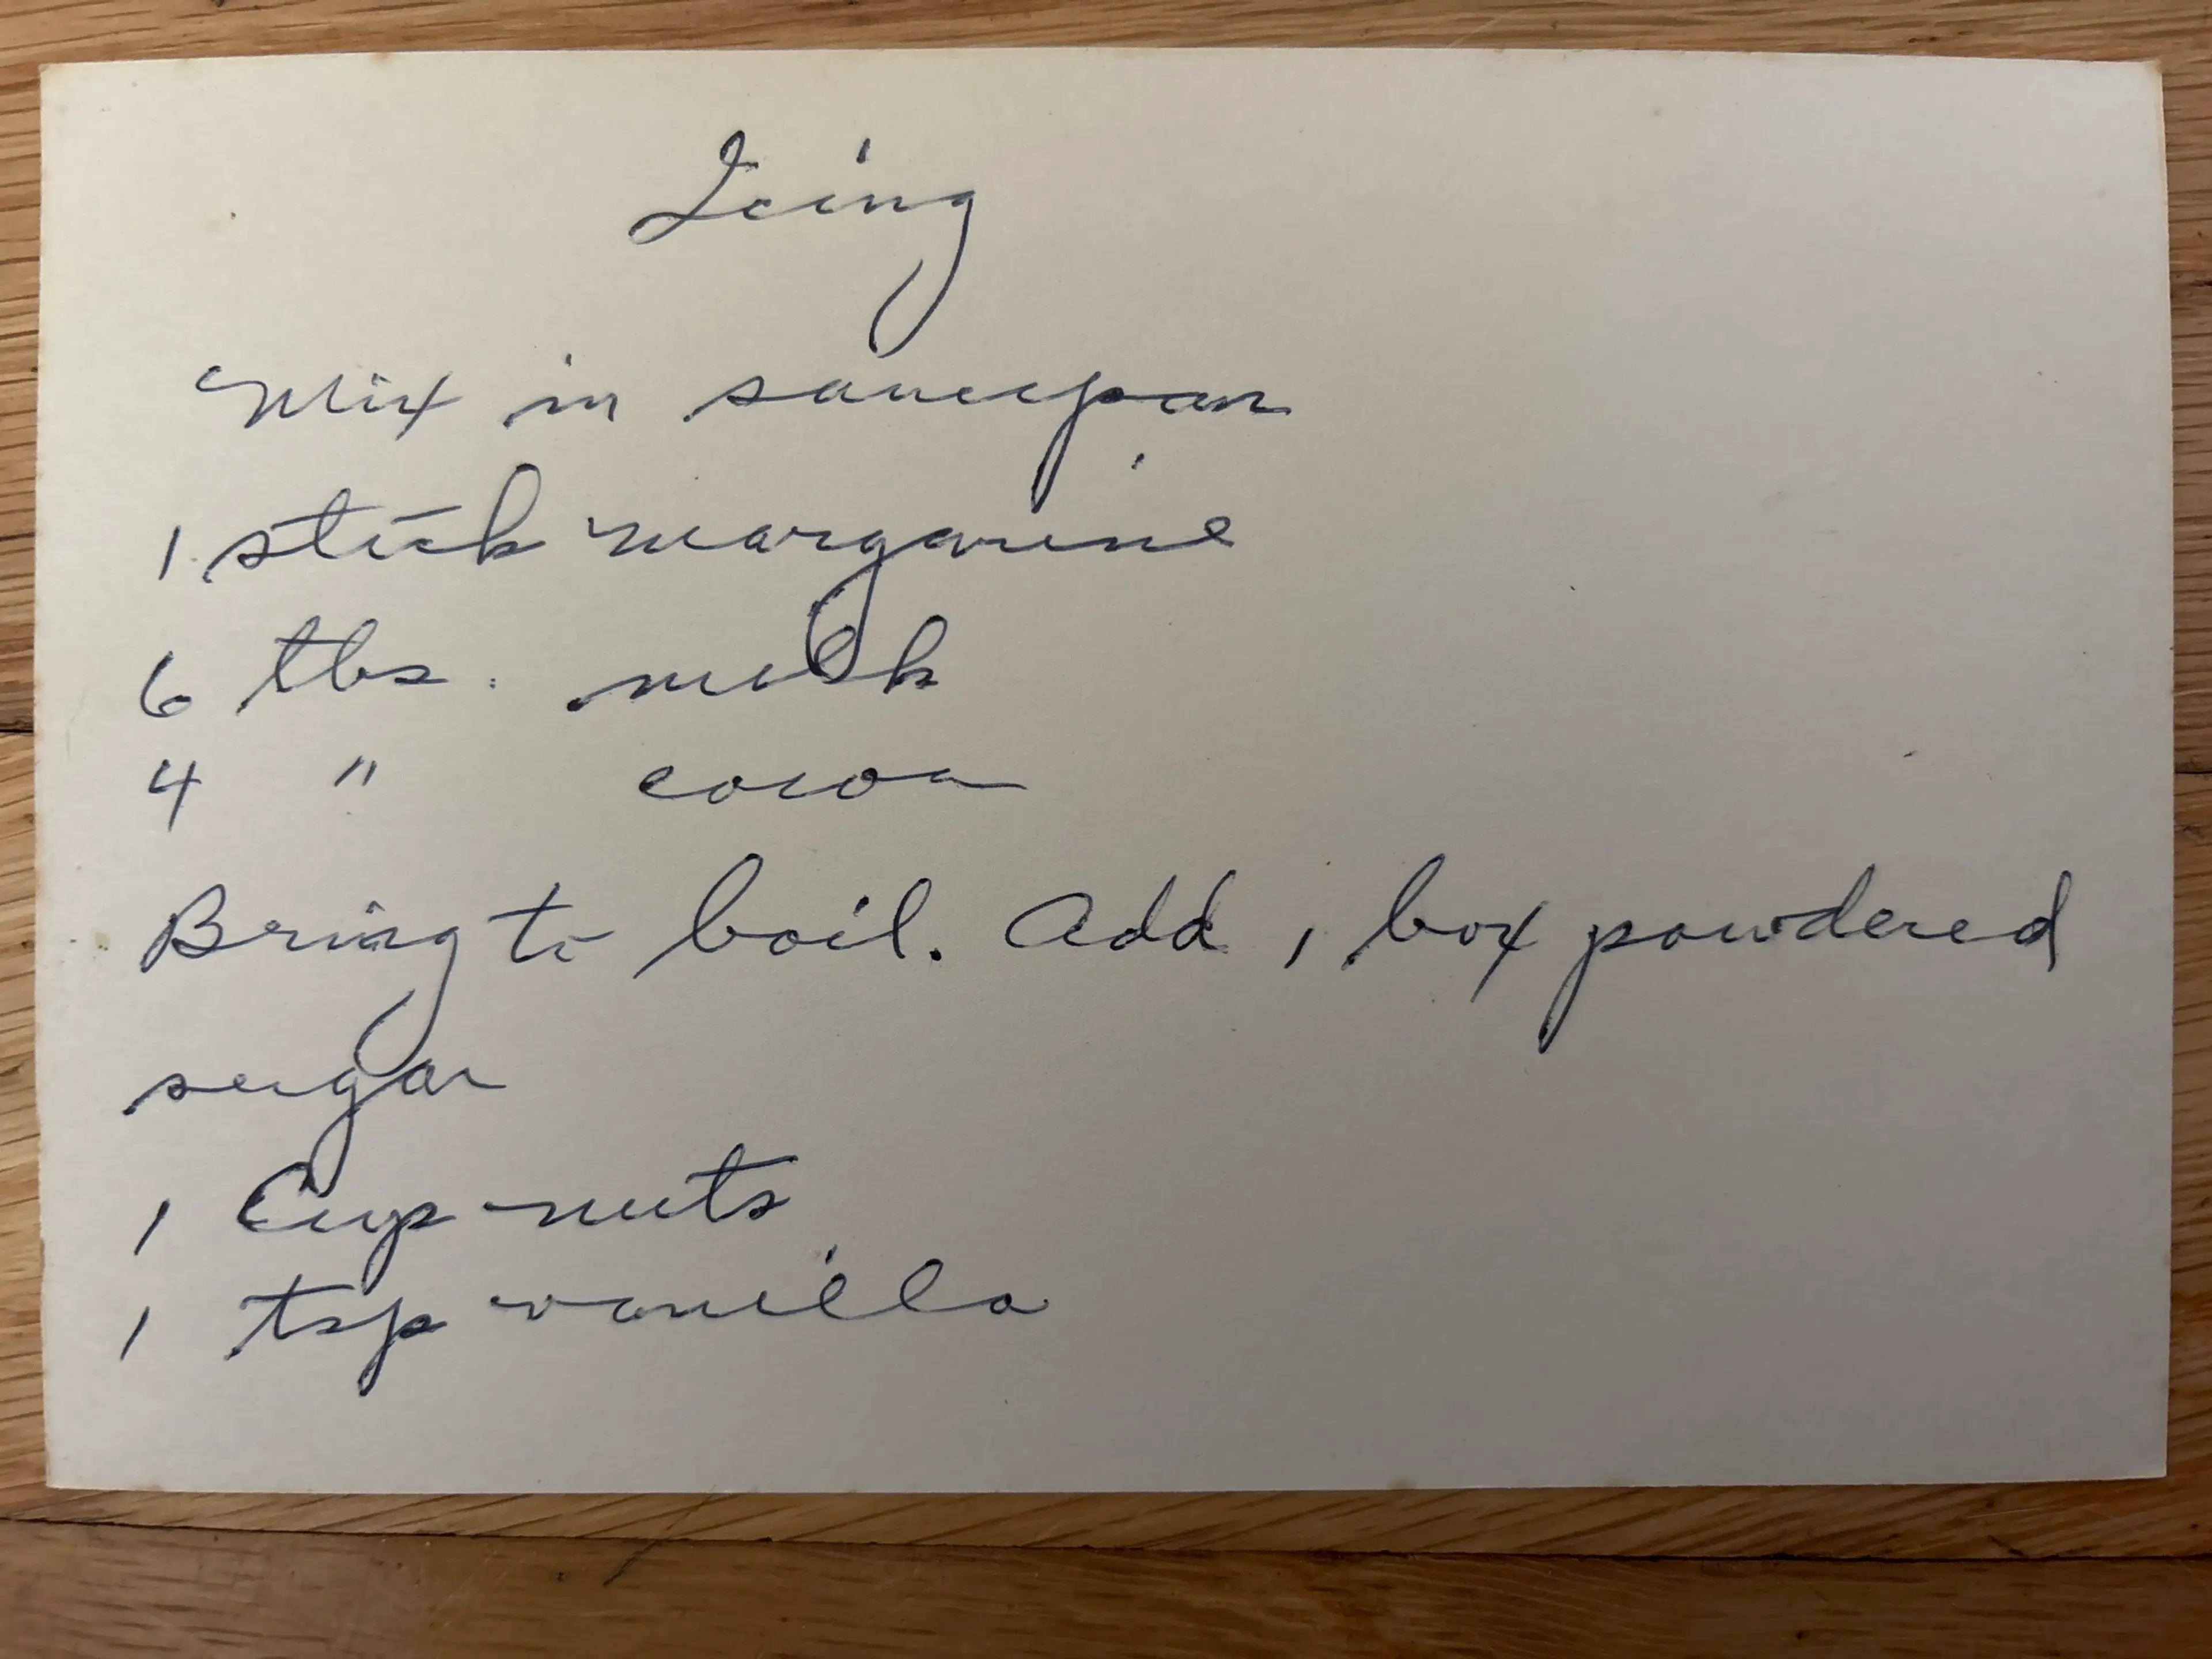 Icing
Mix in saucepan
1 stick margarine
6 tbs. milk
4 " cocoa
Bring to boil. Add 1 box powdered
sugar
1 Cup nuts
1 tsp vanilla